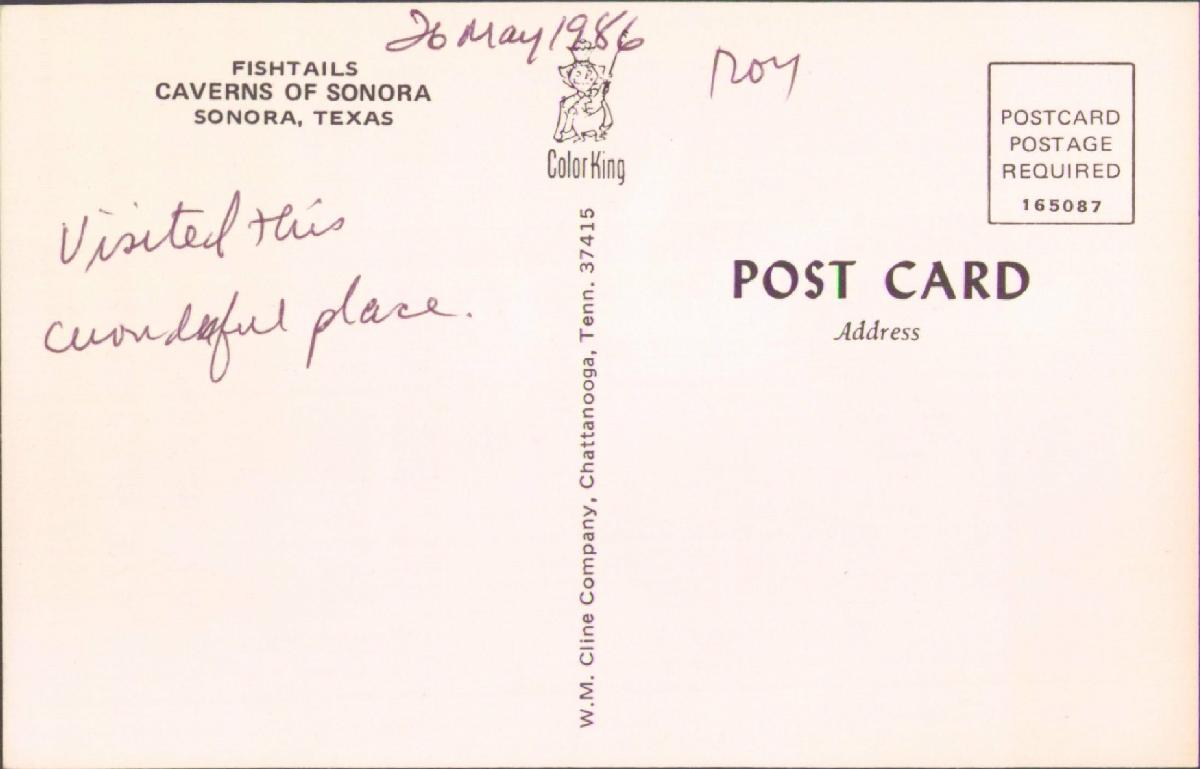 26 May 1986
Roy
FISHTAILS
CAVERNS OF SONORA
SONORA, TEXAS
Visited this
wonderful place.
ColorKing
W.M. Cline Company, Chattanooga, Tenn. 37415
POSTCARD
POSTAGE
REQUIRED
165087
POST CARD
Address